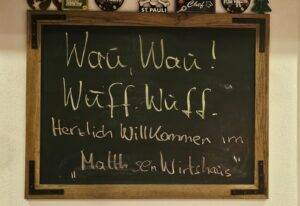 ST. PAULI
Chef
Wau, Wau!
Wuff. Wuff.
Herzlich Willkommen im
„Matthsen Wirtshaus"